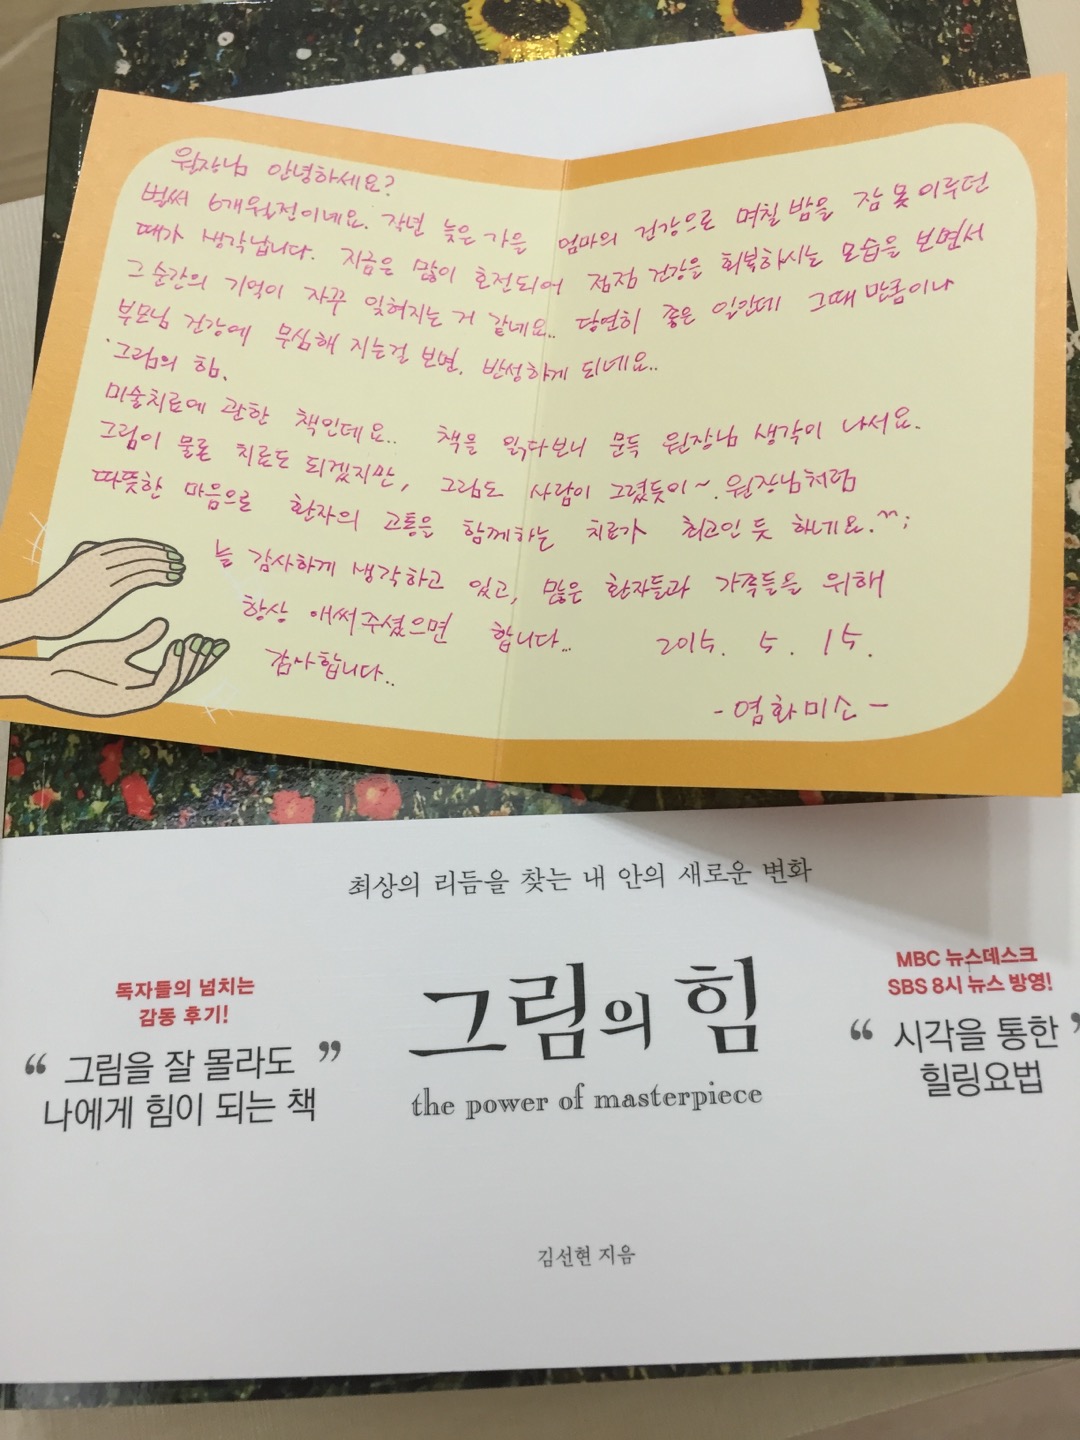 원장님 안녕하세요?
벌써 6개월전이네요. 작년 늦은 가을 엄마의 건강으로 며칠 밤을 잠 못 이루던
때가 생각납니다. 지금은 많이 호전되어 점점 건강을 회복하시는 모습을 보면서
그 순간의 기억이 자꾸 잊혀지는 거 같네요.. 당연히 좋은 일인데 그때 만큼이나
부모님 건강에 무심해 지는걸 보면, 반성하게 되네요..
'그림의 힘,
미술치료에 관한 책인데요.. 책을 읽다보니 문득 원장님 생각이 나서요.
그림이 물론 치료도 되겠지만, 그림도 사람이 그렸듯이~. 원장님처럼
따뜻한 마음으로 환자의 고통을 함께하는 치료가 최고인 듯 하네요.^^;
늘 감사하게 생각하고 있고, 많은 환자들과 가족들을 위해
항상 애써주셨으면 합니다... 2015. 5. 15.
감사합니다..
- 염화미소 -
최상의 리듬을 찾는 내 안의 새로운 변화
독자들의 넘치는
감동 후기!
“ 그림을 잘 몰라도 ”
나에게 힘이 되는 책
그림의 힘
the power of masterpiece
MBC 뉴스데스크
SBS 8시 뉴스 방영!
“ 시각을 통한 ”
힐링요법
김선현 지음